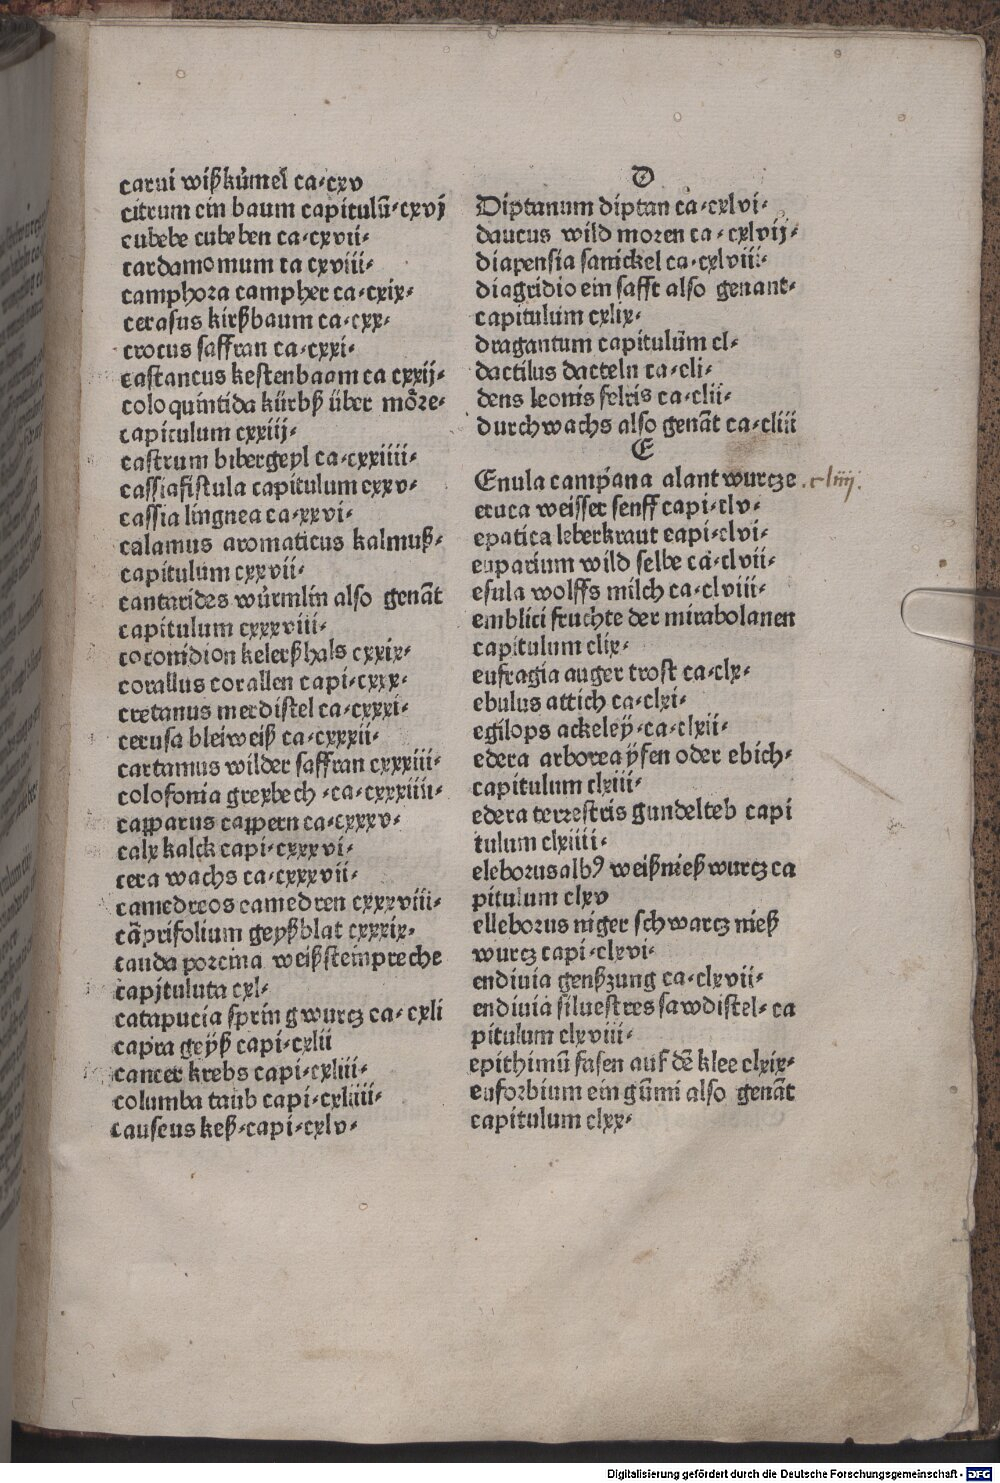 carui wißkůmel ca-cxv
citrum ein baum capitulū-cxvj
cubebe cubeben ca-cxvii-
cardamomum ca cxviii-
camphora campher ca-cxix-
cerasus kirßbaum ca-cxx-
crocus saffran ca-cxxi-
castaneus kestenbaam ca cxxij-
coloquintida kürbß über möre-
capitulum cxxiij-
castrum bibergeyl ca-cxxiiii-
cassiafistula capitulum cxxv-
cassia lingnea ca-xxvi-
calamus aromaticus kalmuß-
capitulum cxxvii-
cantarides würmlin also genāt
capitulum cxxxviii-
coconidion kelerßhals cxxix-
corallus corallen capi-cxxx-
cretanus merdistel ca-cxxxi-
cerusa bleiweiß ca-cxxxii-
cartamus wilder saffran cxxxiii-
colofonia grexbech-ca-cxxxiiii-
capparus cappern ca-cxxxv-
calx kalck capi-cxxxvi-
cera wachs ca-cxxxvii-
camedreos camedren cxxxviii-
cāprifolium geyßblat cxxxix-
cauda porcina weißsteinpreche
capituluta cxl-
catapucia springwurcz ca-cxli
capra geÿß capi-cxlii
cancer krebs capi-cxliii-
columba taub capi-cxliiii-
causeus keß-capi-cxlv-
D
Diptanum diptan ca-cxlvi-
daucus wild moren ca-cxlvij-
diapensia sanickel ca-cxlviii-
diagridio ein safft also genant-
capitulum cxlix-
dragantum capitulüm cl-
dactilus dacteln ca-cli-
dens leonis felris ca-clii-
durchwachs also genāt ca-cliii
E
Enula campana alantwurcze .cliiij.
eruca weisser senff capi-clv-
epatica leberkraut capi-clvi-
euparium wild selbe ca-clvii-
esula wolffs milch ca-clviii-
emblici fruchte der mirabolanen
capitulum clix-
eufragia auger trost ca-clx-
ebulus attich ca-clxi-
egilops ackeleÿ-ca-clxii-
edera arborea ÿsen oder ebich-
capitulum clxiii-
edera terrestris gundelreb capi
tulum clxiiii-
eleborus albꝰ weißnießwurcz ca
pitulum clxv
elleborus niger schwarcz nieß
wurcz capi-clxvi-
endiuia genßzung ca-clxvii-
endiuia siluestres sawdistel-ca
pitulum clxviii-
epithimū fasen auf dē klee clxix-
euforbium ein gūmi also genāt
capitulum clxx-
Digitalisierung gefördert durch die Deutsche Forschungsgemeinschaft - DFG